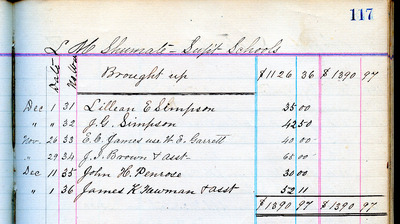 117
L M Shumate - Supt Schools
Date No Wa
Brought up $1126 36 $1390 97
Dec 1 31 Lillian E Simpson 35 00
" " 32 J. G. Simpson 42 50
Nov. 26 33 E. C. James use H. E. Garrett 40 00
" 29 34 J. I. Brown & asst. 65 00
Dec 11 35 John H. Penrose 30 00
" 1 36 James K Newman & asst 52 11
$1390 97 $1390 97